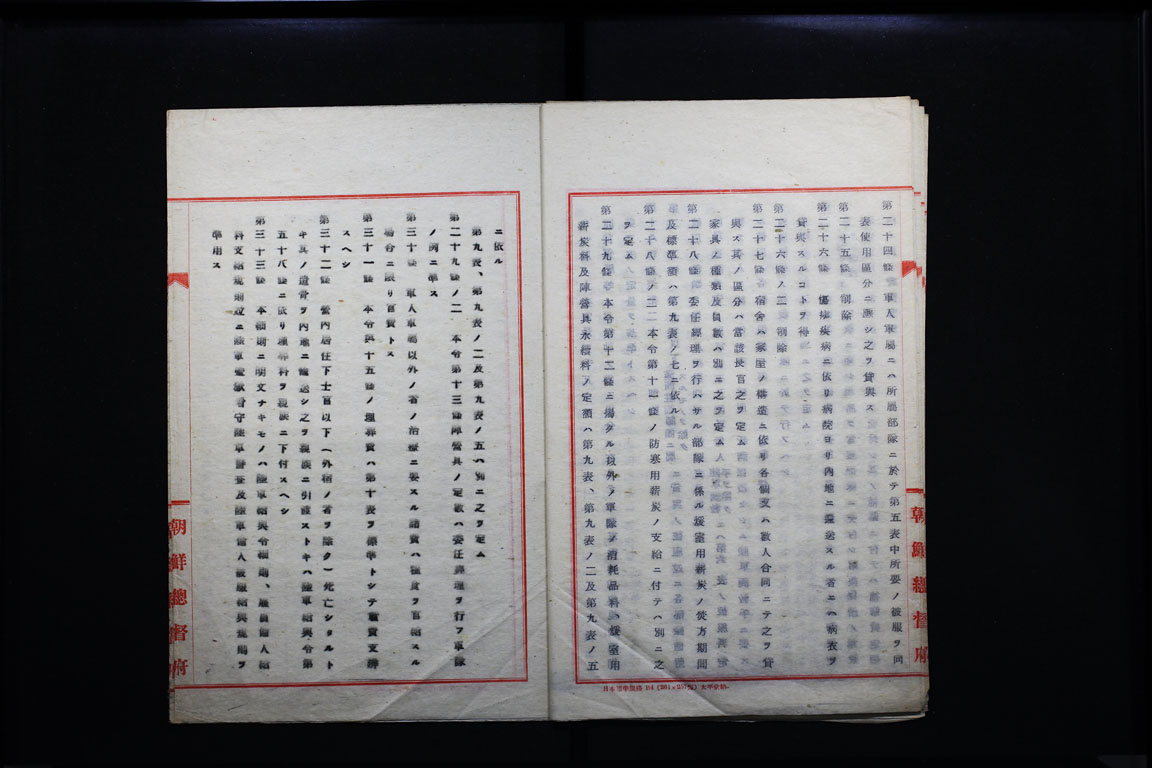 第二十四條 軍人軍屬ニハ所屬部隊ニ於テ第五表中所要ノ被服ヲ同
表使用區分ニ應シ之ヲ貸與ス
第二十五條 削除
第二十六條 傷痍疾病ニ依リ病院ヨリ內地ニ還送スル者ニハ病衣ヲ
貸與スルコトヲ得
第二十六條ノ二 削除
第二十七條 宿舍ハ家屋ノ構造ニ依リ各個又ハ數人合同ニテ之ヲ貸
與ス其ノ區分ハ當該長官之ヲ定ム
家具ノ種類及員數ハ別ニ之ヲ定ム
第二十八條 委任經理ヲ行ハサル部隊ニ係ル煖室用薪炭ノ焚方期間
及標準額ハ第九表ノ七ニ依ル
第二十八條ノ二 本令第十一條ノ防寒用薪炭ノ支給ニ付テハ別ニ之
ヲ定ム
第二十九條 本令第十二條ニ揭クル以外ノ軍隊ノ消耗品料、煖室用
薪炭料及陣營具永續料ノ定額ハ第九表、第九表ノ二及第九表ノ五
ニ依ル
第九表、第九表ノ二及第九表ノ五ハ別ニ之ヲ定ム
第二十九條ノ二 本令第十三條陣營具ノ定數ハ委任經理ヲ行フ軍隊
ノ例ニ準ス
第三十條 軍人軍屬以外ノ者ノ治療ニ要スル諸費ハ糧食ヲ官給スル
場合ニ限リ官費トス
第三十一條 本令第十五條ノ埋葬費ハ第十表ヲ標準トシテ實費支辨
スヘシ
第三十二條 營內居住下士官以下(外宿ノ者ヲ除ク)死亡シタルト
キ其ノ遺骨ヲ內地ニ輸送シ之ヲ親族ニ引渡ストキハ陸軍給與令第
五十八條ニ依リ埋葬料ヲ親族ニ下付スヘシ
第三十三條 本細則ニ明文ナキモノハ陸軍給與令細則、雇員傭人給
料支給規則竝ニ陸軍監獄看守陸軍警査及陸軍傭人被服給與規則ヲ
準用ス
朝鮮總督府
朝鮮總督府